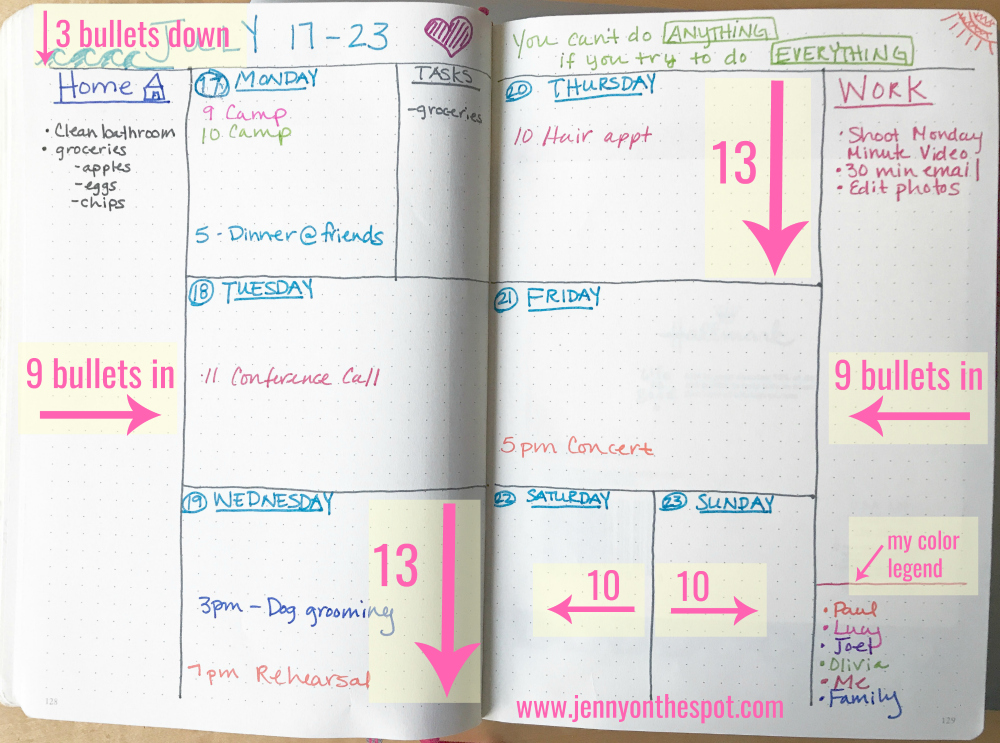 3 bullets down
JULY 17-23
You can't do ANYTHING
if you try to do EVERYTHING
Home
• Clean bathroom
• groceries
-apples
-eggs
-chips
9 bullets in
17 MONDAY
9 Camp
10 Camp
5 - Dinner @ friends
TASKS
-groceries
18 TUESDAY
11 Conference Call
19 WEDNESDAY
13
3pm - Dog grooming
7pm Rehearsal
128
20 THURSDAY
10 Hair appt
13
21 FRIDAY
5pm Concert
22 SATURDAY
10
23 SUNDAY
10
WORK
• Shoot Monday
Minute Video
• 30 min email
• Edit photos
9 bullets in
my color
legend
• Paul
• Lucy
• Joel
• Olivia
• Me
• Family
www.jennyonthespot.com
129